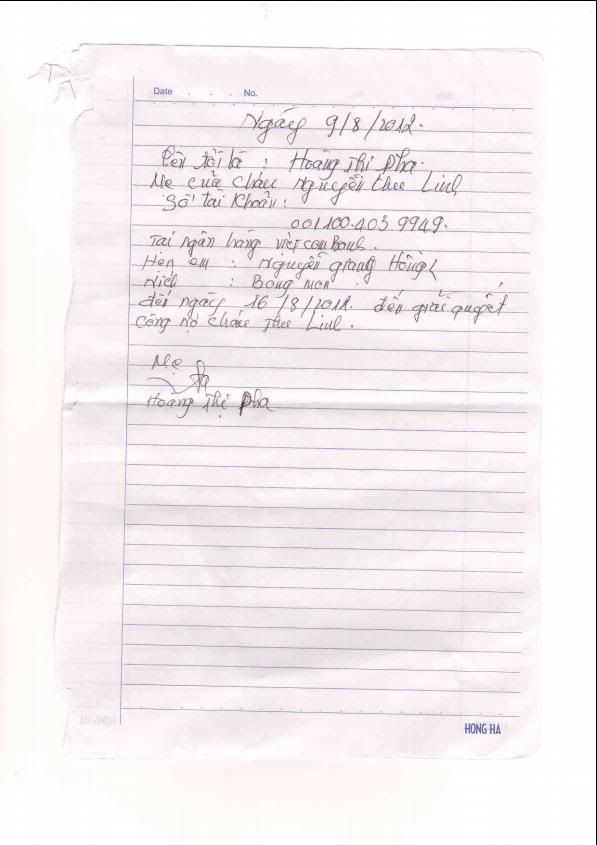 Date . . . No.
Ngày 9/8/2012.
Tên tôi là : Hoàng Thị Pha.
Mẹ của cháu Nguyễn Thu Linh
Số tài Khoản:
001100.403 9949.
Tại ngân hàng vietcombank.
Hẹn em : Nguyễn giang Hồng
Nick : Bong mon
đến ngày 16/8/2012. đến giải quyết
công nợ cháu Thu Linh.
Mẹ
Hoàng Thị Pha
HONG HA